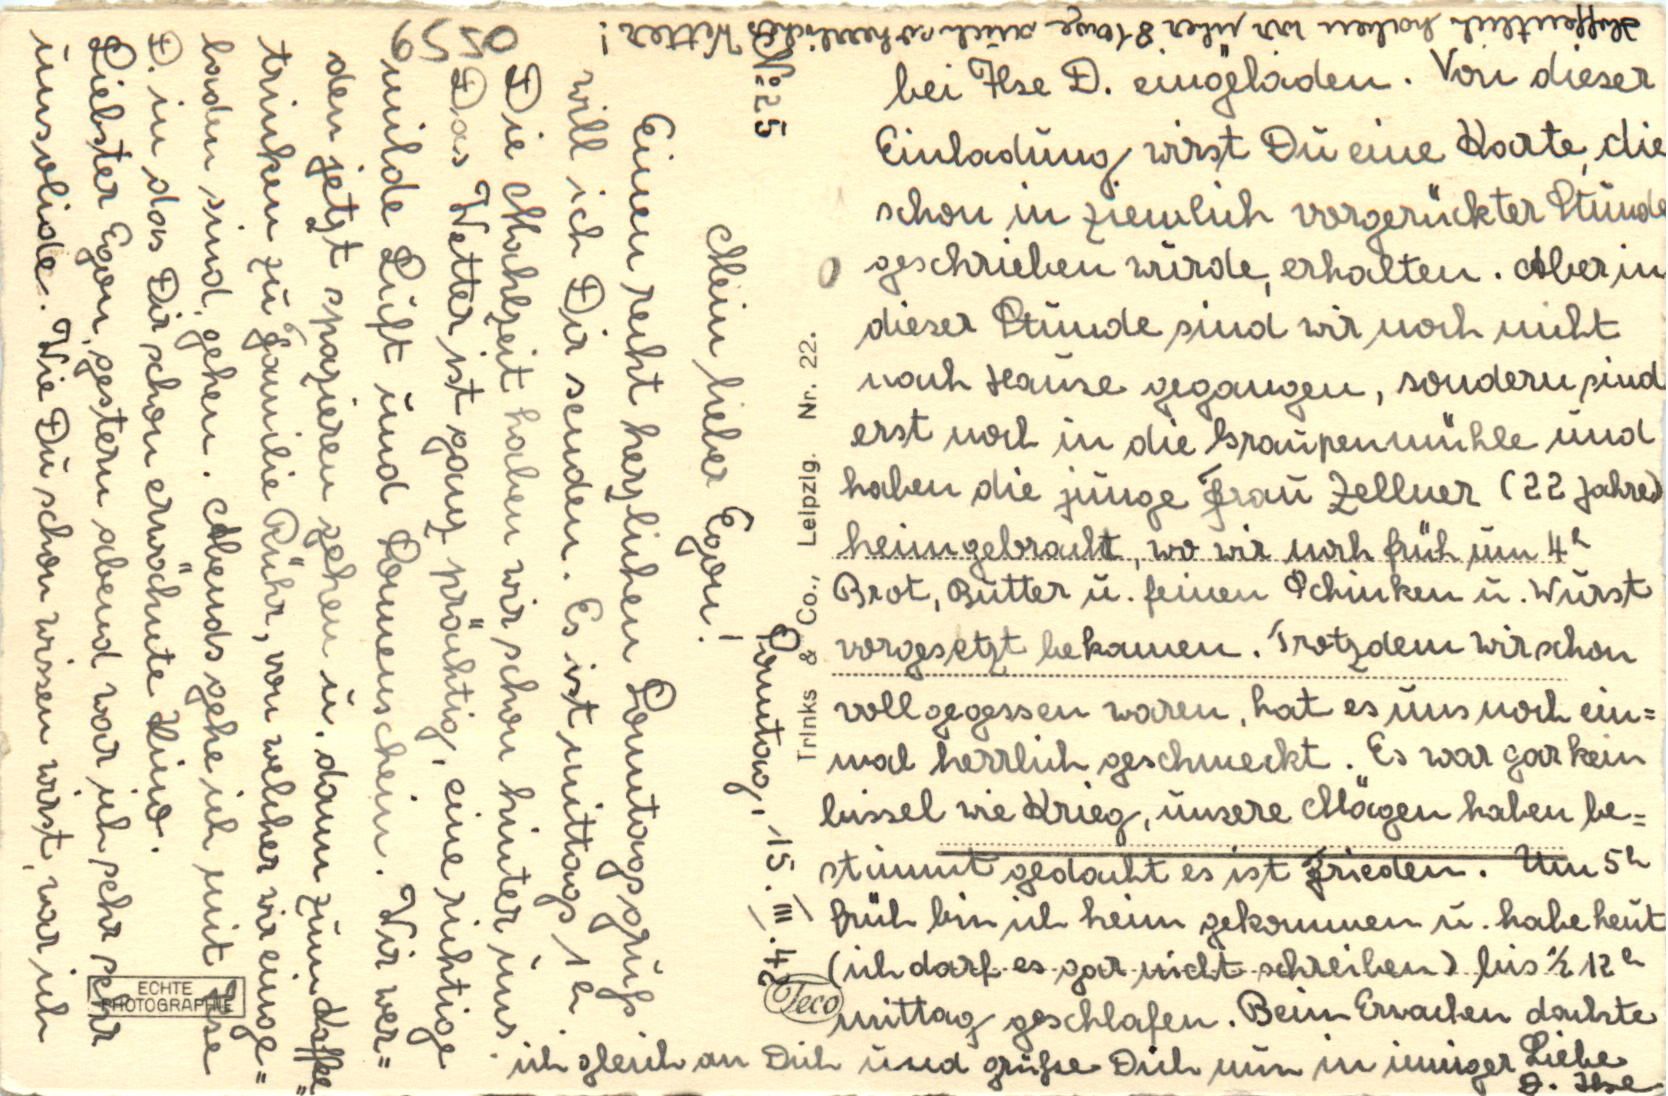 № 25
Sonntag, 15. III. 42
Mein lieber Egon!
Einen recht herzlichen Sonntagsgruß
will ich Dir senden. Es ist mittags 1 h.
Die Mahlzeit haben wir schon hinter uns.
Das Wetter ist ganz prächtig, eine richtige
milde Luft und Sonnenschein. Wir wer=
den jetzt spazieren gehen u. dann zum Kaffee=
trinken zu Familie Rühr, von welcher wir einge=
laden sind, gehen. Abends gehe ich mit Ilse
D. in das Dir schon erwähnte Kino.
Liebster Egon, gestern abend war ich sehr sehr
unsolide. Wie Du schon wissen wirst, war ich
bei Ilse D. eingeladen. Von dieser
Einladung wirst Du eine Karte, die
schon in ziemlich vorgerückter Stunde
geschrieben wurde, erhalten. Aber in
dieser Stunde sind wir noch nicht
nach Hause gegangen, sondern sind
erst noch in die Graupenmühle und
haben die junge Frau Zellner (22 Jahre)
heimgebracht, wo wir noch früh um 4 h
Brot, Butter u. feinen Schinken u. Wurst
vorgesetzt bekamen. Trotzdem wir schon
voll gegessen waren, hat es uns noch ein=
mal herrlich geschmeckt. Es war gar kein
bissel wie Krieg, unsere Mägen haben be=
stimmt gedacht es ist Frieden. Um 5 h
früh bin ich heim gekommen u. habe heut
(ich darf es gar nicht schreiben) bis ½ 12 h
mittag geschlafen. Beim Erwachen dachte
ich gleich an Dich und grüße Dich nun in inniger Liebe
D. Ilse
Hoffentlich haben wir über 8 Tage auch so herrliches Wetter!
0559
Trinks & Co., Leipzig. Nr. 22.
Teco
ECHTE
PHOTOGRAPHIE